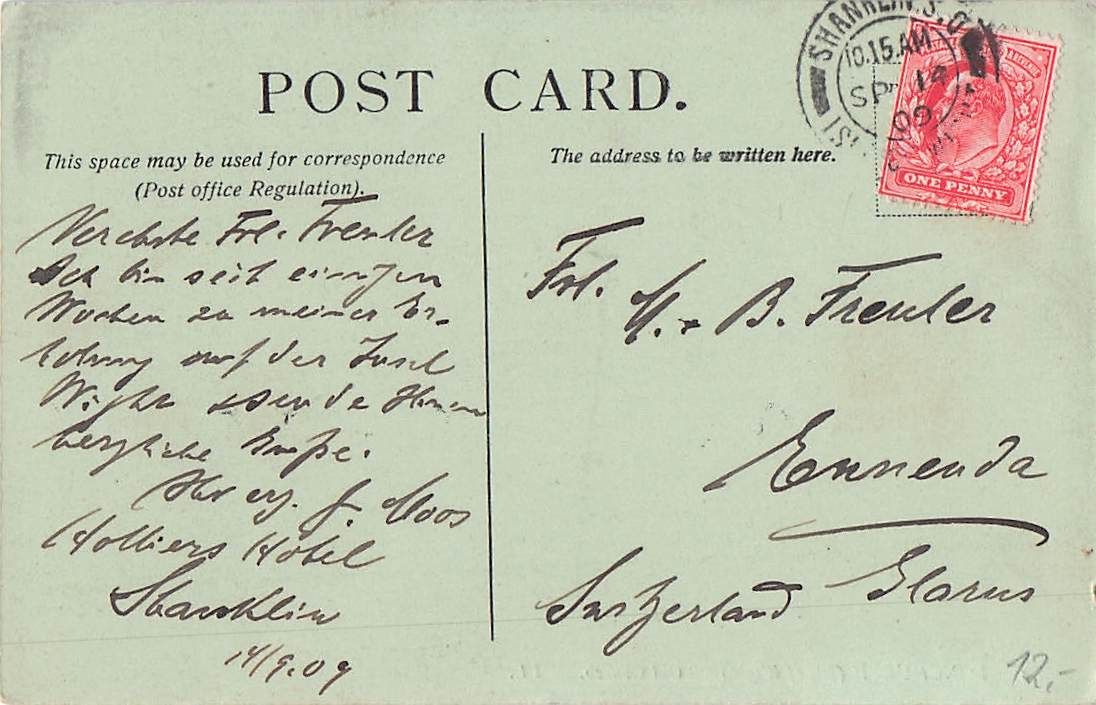 POST CARD.
This space may be used for correspondence
(Post office Regulation).
The address to be written here.
SHANKLIN. S.O
10.15 AM
SP 14
09
ONE PENNY
Verehrte Frl. Freuler
Ich bin seit einigen
Wochen zu meiner Er-
holung auf der Insel
Wight & sende Ihnen
herzliche Grüße.
Ihr erg. J. Moos
Holliers Hotel
Shanklin
14/9.09
Frl.
M. + B. Freuler
Ennenda
Switzerland Glarus
12.-